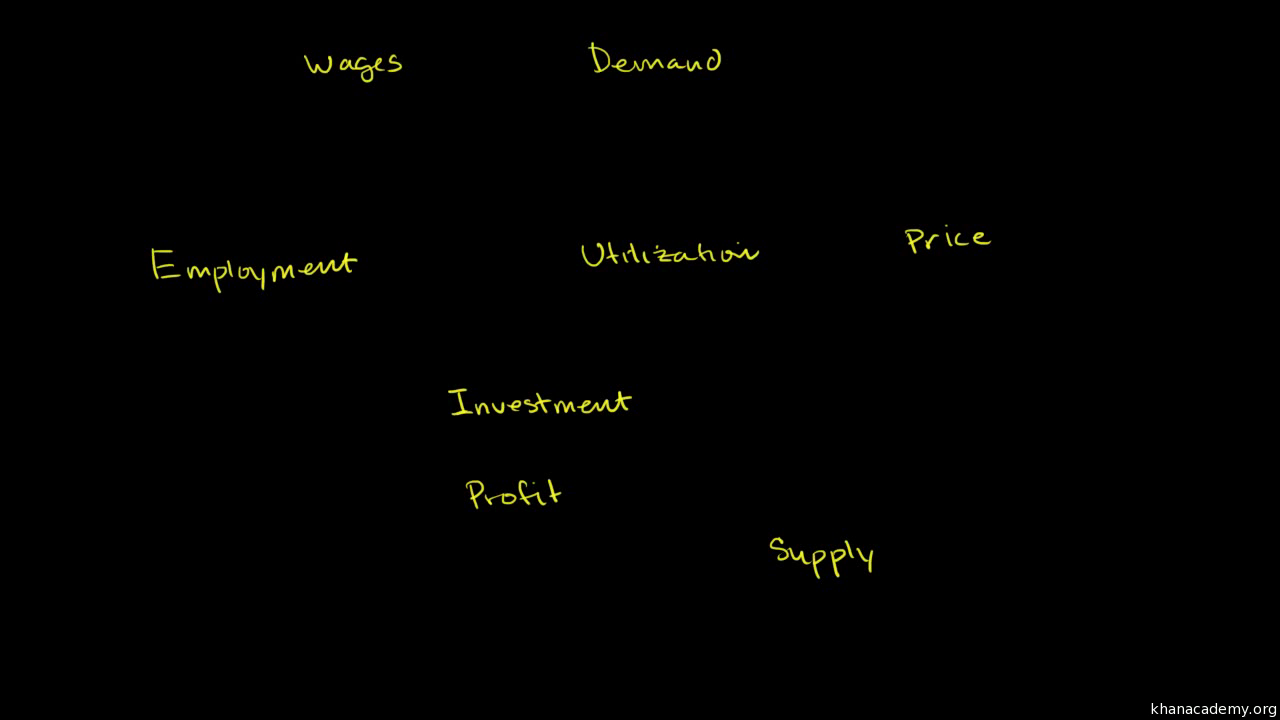 Wages Demand
Employment Utilization Price
Investment
Profit
Supply
khanacademy.org